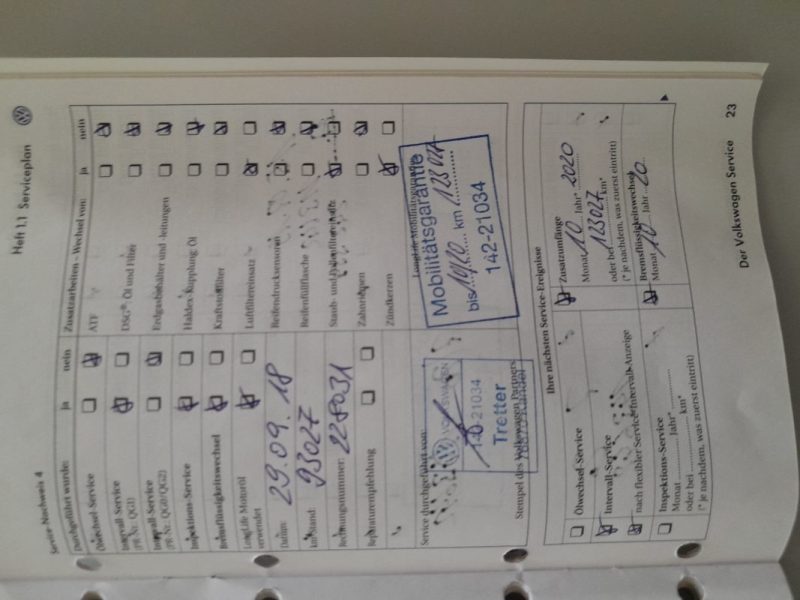 Heft 1.1 Serviceplan
Service-Nachweis 4
Durchgeführt wurde: ja nein
Ölwechsel-Service
Intervall-Service
(PR-Nr. QG1)
Intervall-Service
(PR-Nr. QG0/QG2)
Inspektions-Service
Bremsflüssigkeitswechsel
LongLife Motoröl
verwendet
Datum: 29.09.18
km-Stand: 93027
Rechnungsnummer: 228031
Reparaturempfehlung
Zusatzarbeiten - Wechsel von: ja nein
ATF
DSG® Öl und Filter
Erdgasbehälter und -leitungen
Haldex-Kupplung Öl
Kraftstofffilter
Luftfiltereinsatz
Reifendrucksensoren
Reifenfüllflasche
Staub- und Pollenfilter
Zahnriemen
Zündkerzen
Service durchgeführt von:
VOLKSWAGEN
142-21034
Tretter
Stempel des Volkswagen Partners
LongLife Mobilitätsgarantie
Mobilitätsgarantie
bis 10/20 km 123 027
142-21034
Ihre nächsten Service-Ereignisse
Ölwechsel-Service
Intervall-Service
nach flexibler Service-Intervall-Anzeige
Inspektions-Service
Monat ........ Jahr* ........
oder bei ........ km*
(* je nachdem, was zuerst eintritt)
Zusatzumfänge
Monat 10 Jahr* 2020
oder bei 123027 km*
(* je nachdem, was zuerst eintritt)
Bremsflüssigkeitswechsel
Monat 10 Jahr 20
Der Volkswagen Service 23